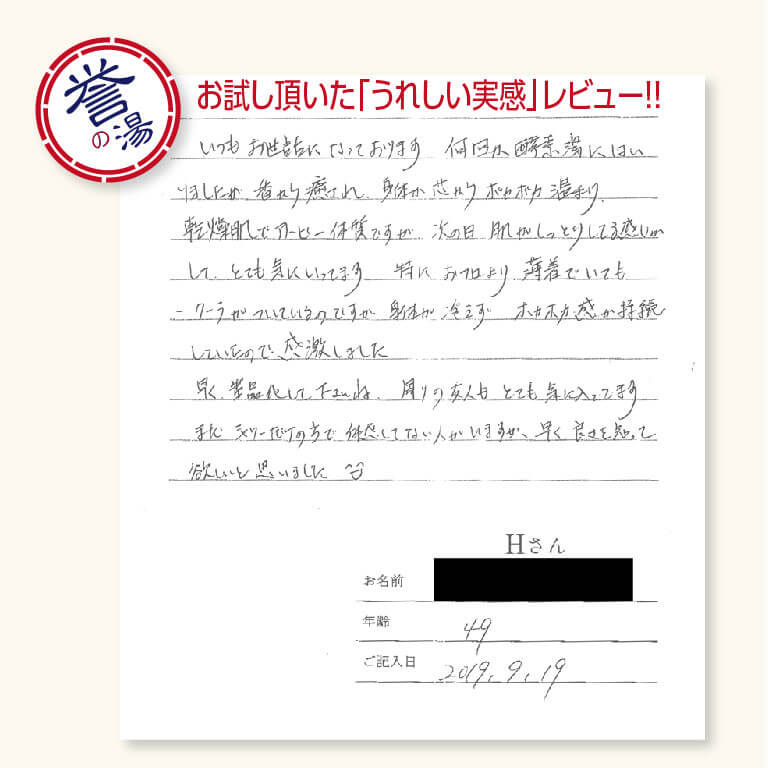 誉の湯
お試し頂いた「うれしい実感」レビュー!!
いつもお世話になっております 何回か酵素湯にはい
りましたが、香から癒され、身体が芯からポカポカ温まり、
乾燥肌でアトピー体質ですが、次の日 肌がしっとりしてる感いが
して、とても気にいってます 特に おフロより 薄着でいても
クーラがついているのですが 身体が冷えず ポカポカ感が持続
していたので感激しました
早く、製品化して下さいね、周りの友人も とても気に入ってます
まだ だけの方で 体感してない人がいますが、早く良さを知って
欲しいと思いました
Hさん
お名前
年齢 49
ご記入日 2019.9.19